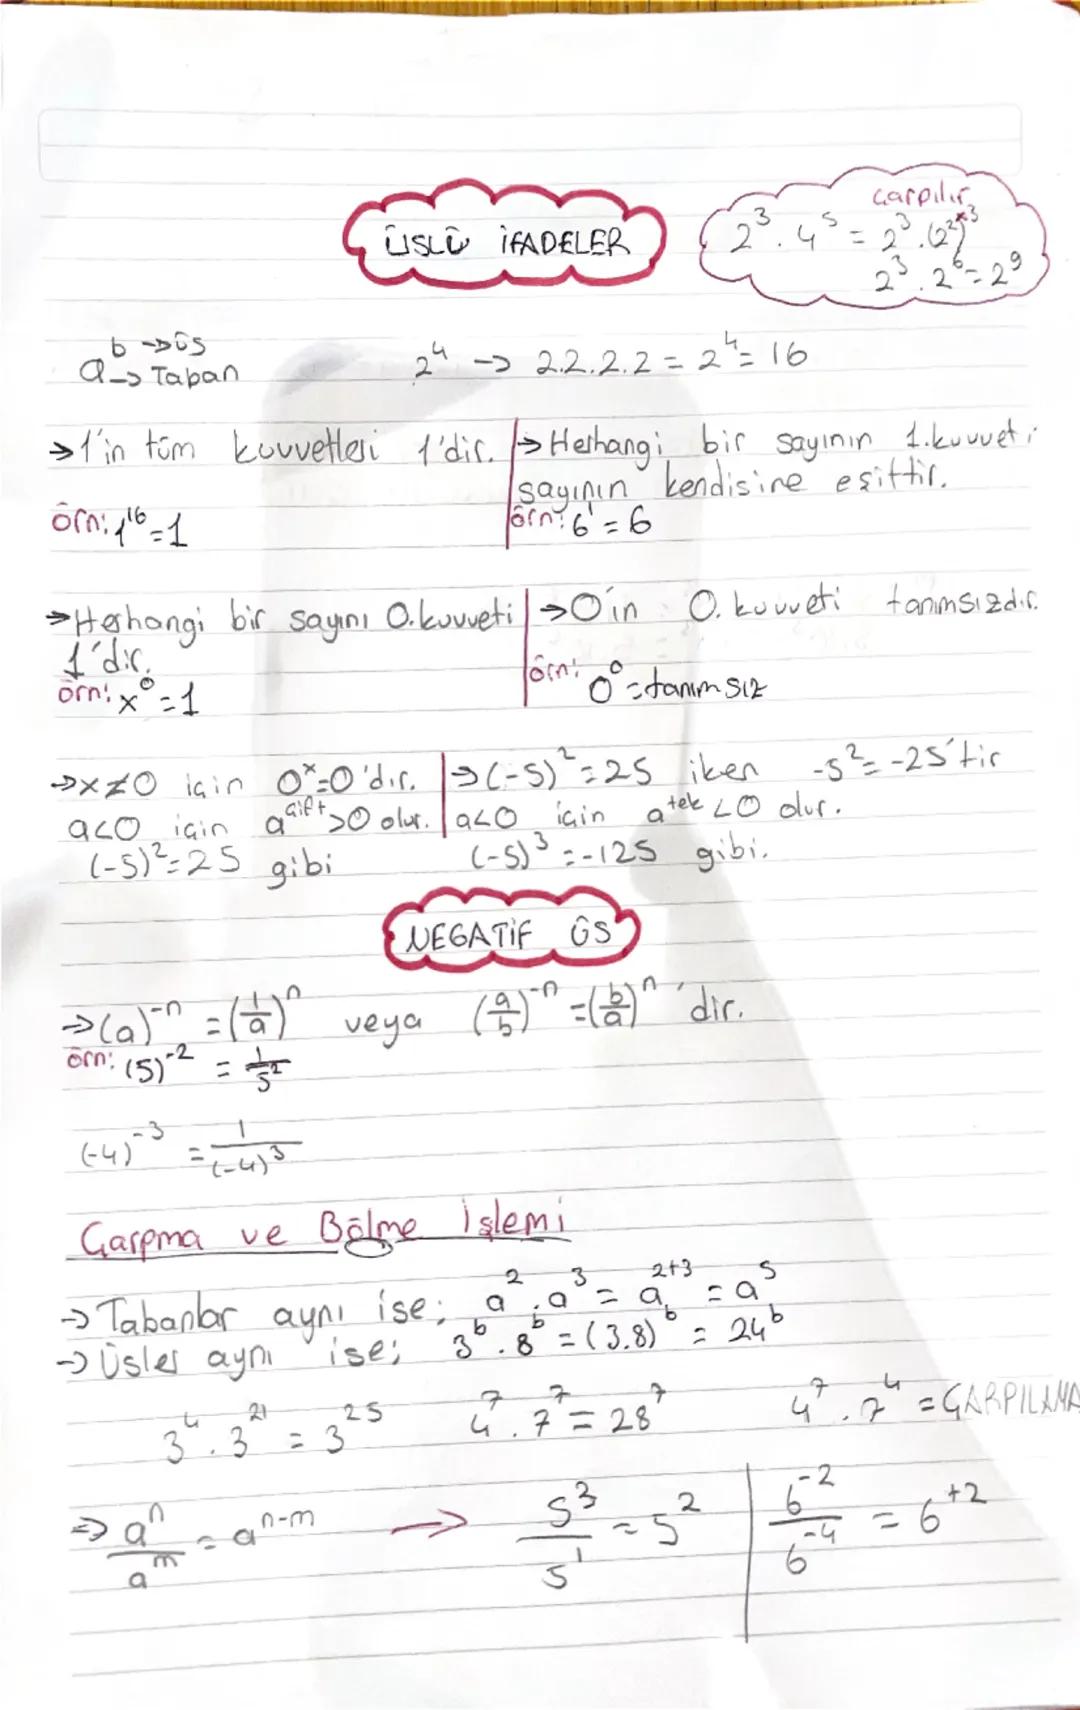 ÜSLÜ İFADELER
Çarpılır
2³ . 4⁵ = 2³ . (2²)ˣ³
2³ . 2⁶ = 2⁹
b → üs
a → Taban
2⁴ → 2.2.2.2 = 2⁴ = 16
→ 1'in tüm kuvvetleri 1'dir.
örn: 1¹⁶ = 1
→ Herhangi bir sayının 1.kuvveti
sayının kendisine eşittir.
örn: 6¹ = 6
→ Herhangi bir sayını 0.kuvveti
1'dir.
örn: x⁰ = 1
→ 0'ın 0. kuvveti tanımsızdır.
örn: 0⁰ = tanımsız
→ x ≠ 0 için 0ˣ = 0'dır.
a<0 için a^çift > 0 olur.
(-5)² = 25 gibi
→ (-5)² = 25 iken -5² = -25'tir
a<0 için a^tek < 0 olur.
(-5)³ = -125 gibi.
NEGATİF ÜS
→ (a)⁻ⁿ = (1/a)ⁿ veya (a/b)⁻ⁿ = (b/a)ⁿ 'dir.
örn: (5)⁻² = 1/5²
(-4)⁻³ = 1/(-4)³
Çarpma ve Bölme İşlemi
→ Tabanlar aynı ise; a² . a³ = a²⁺³ = a⁵
→ Üsler aynı ise; 3^b . 8^b = (3.8)^b = 24^b
3⁴ . 3²¹ = 3²⁵ 4⁷ . 7⁷ = 28⁷ 4⁷ . 7⁴ = ÇARPILAMA
⇒ aⁿ/a^m = a^n-m → 5³/5¹ = 5² 6⁻²/6⁻⁴ = 6⁺²